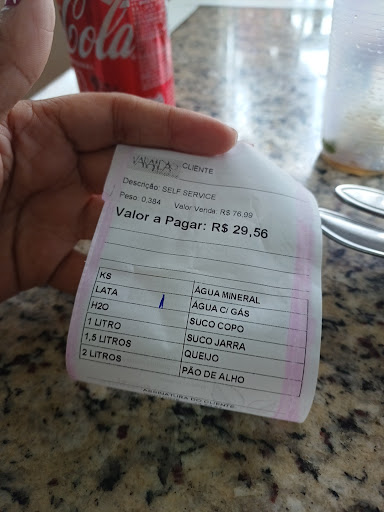 Cola
CLIENTE
Descrição: SELF SERVICE
Peso: 0,384 Valor Venda: R$ 76,99
Valor a Pagar: R$ 29,56
KS ÁGUA MINERAL
LATA ÁGUA C/ GÁS
H2O SUCO COPO
1 LITRO SUCO JARRA
1,5 LITROS QUEIJO
2 LITROS PÃO DE ALHO
ASSINATURA DO CLIENTE